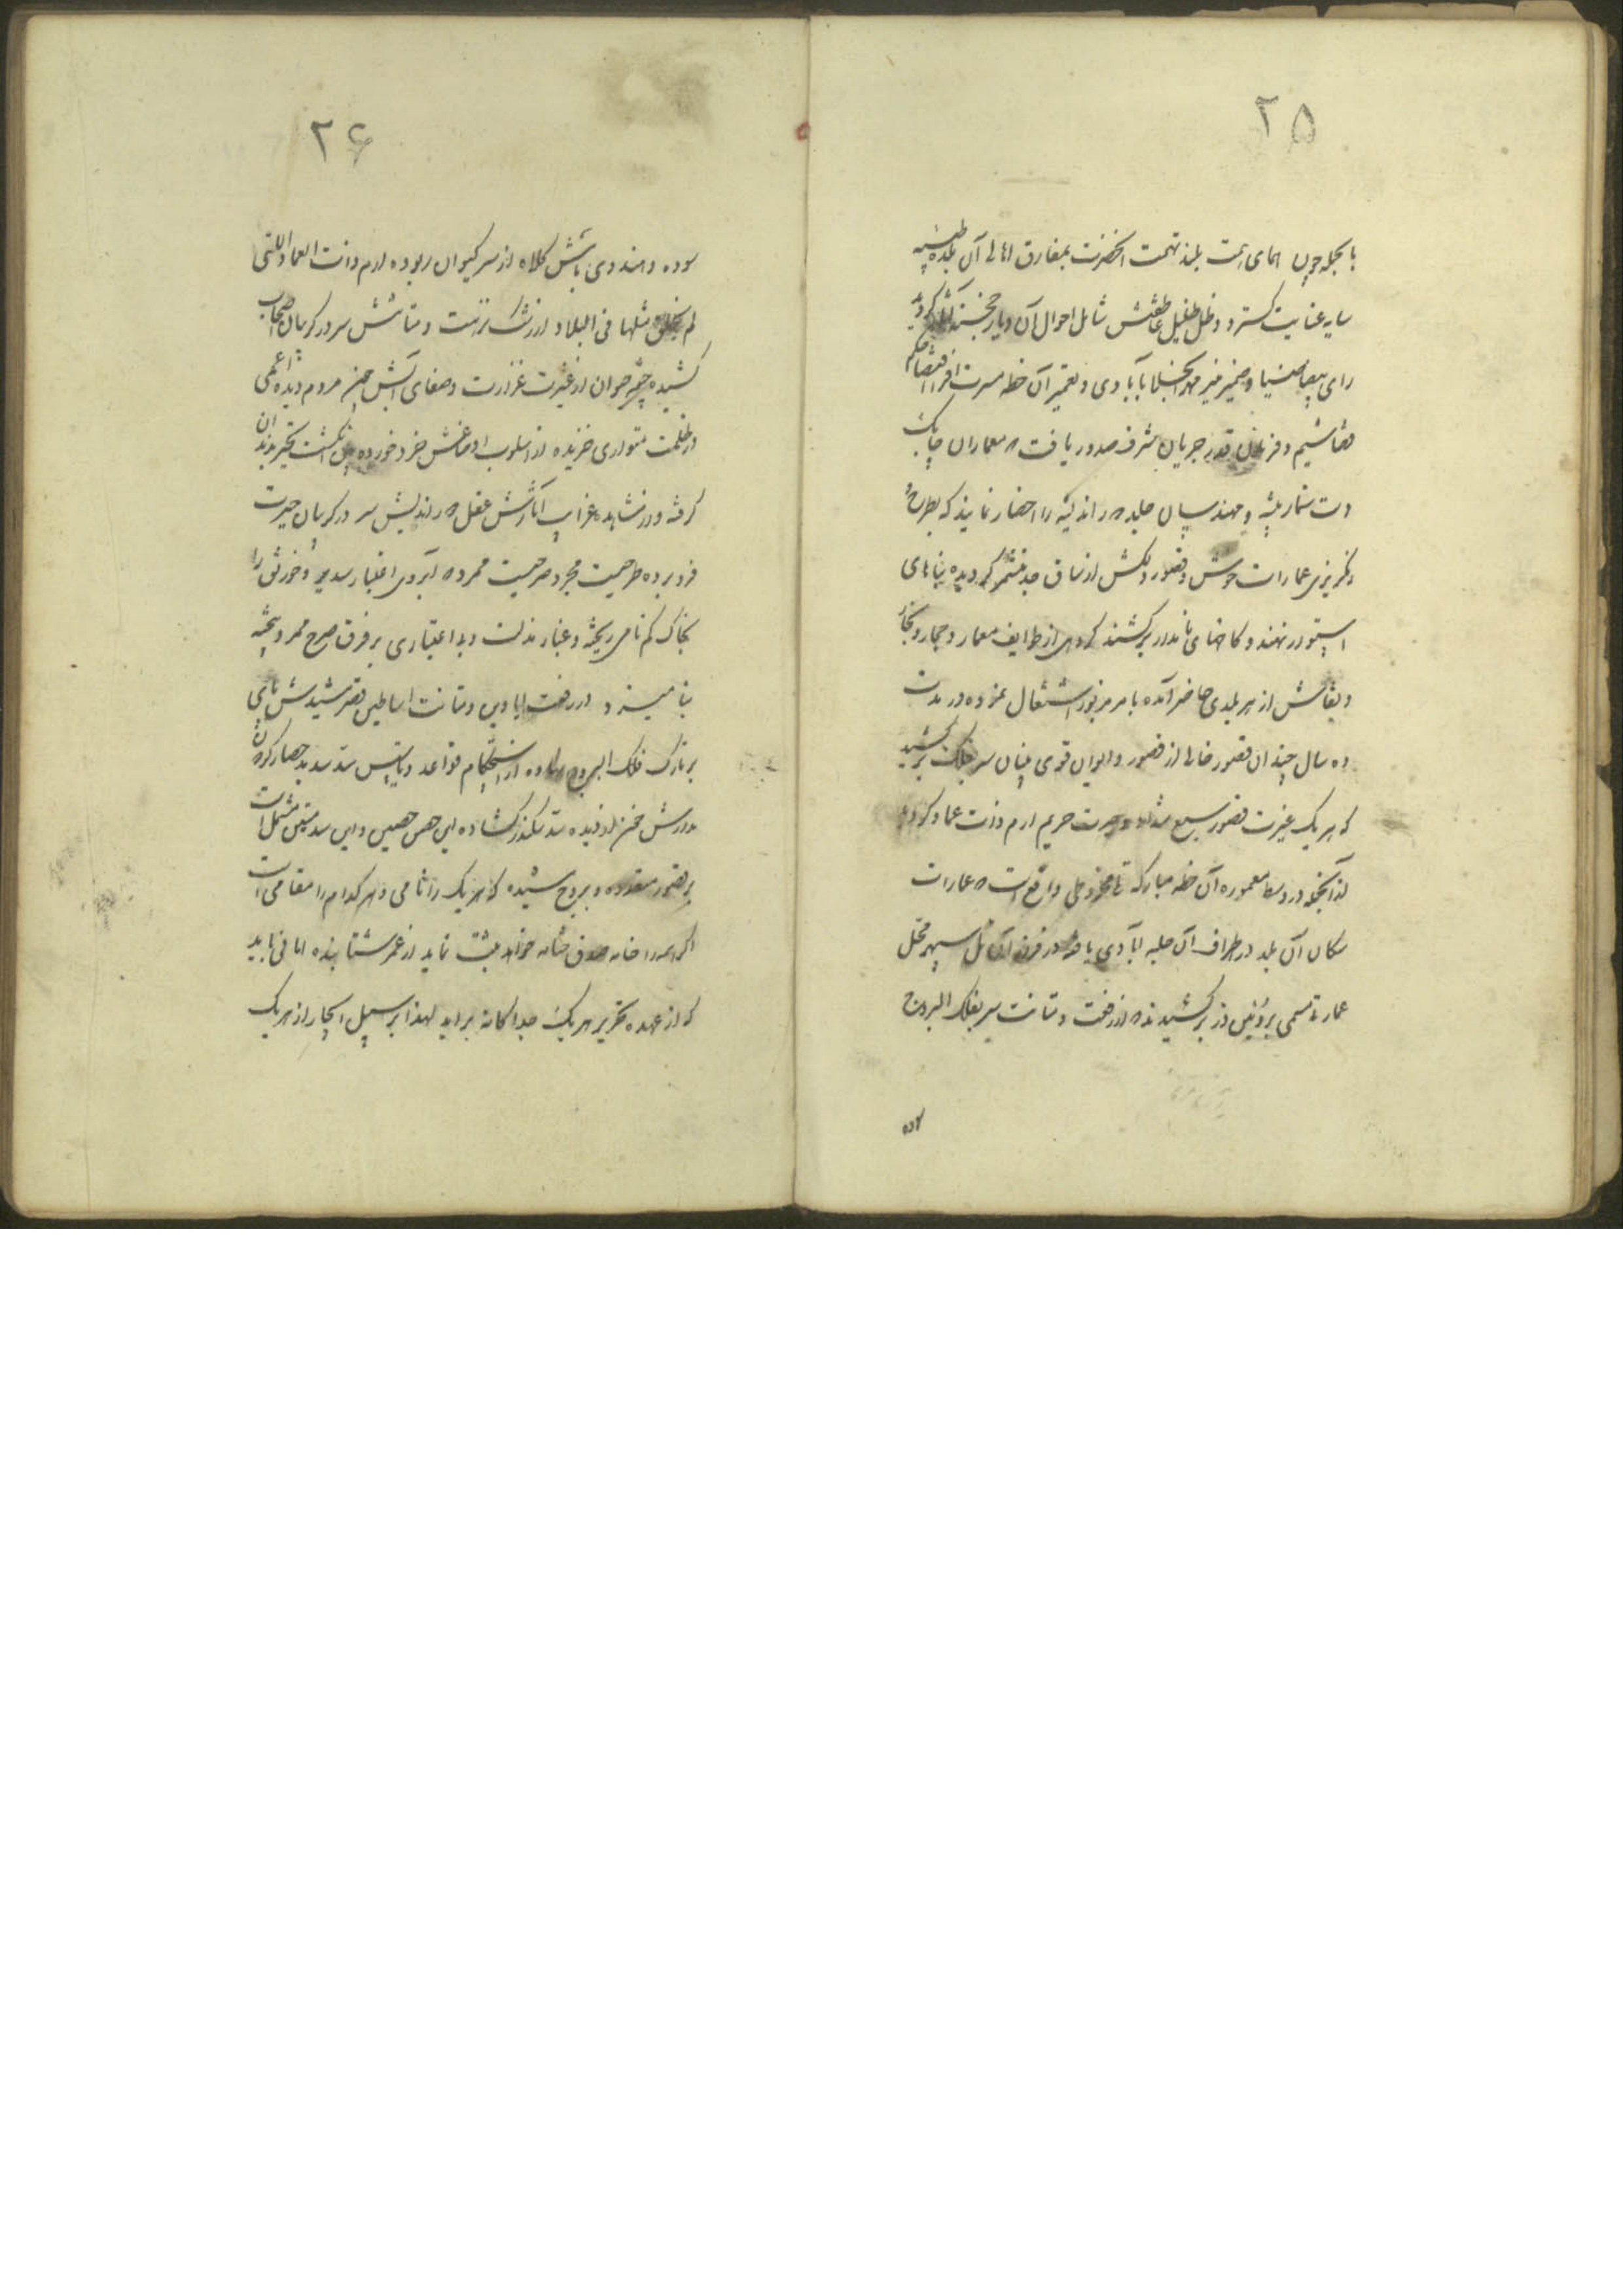 ۲۵
بالجمله چون همای همت بلند نهمت آنحضرت بمفارق اهالی آن بلده طیبه
سایه عنایت گسترد و ظل ظلیل عاطفتش شامل احوال آن دیار خجسته آثار گردید
رای بیضا ضیا و ضمیر منیر مهر انجلا بآبادی و تعمیر آن خطه مسرت افزا اقتضا حکم
قضا شیم و فرمان قدر جریان شرف صدور یافت که معماران چابک
دست سنمار پیشه و مهندسان جلد اندیشه را احضار نمایند که بطرح
رنگ ریزی عمارات خوش و قصور دلکش از ساق جد متشمر گردیده بناهای
استوار نهند و کاخهای نامدار برکشند گروهی از طوایف معمار و حجار و نجار
و نقاش از هر بلدی حاضر آمده بامر مزبور اشتغال نموده در مدت
ده سال چندان قصور خالی از قصور و ایوان قوی بنیان سر بفلک برکشید
که هر یک غیرت قصور سبع شداد و حریم ارم ذات عماد گردد
از آنجمله در وسط معموره آن خطه مبارکه تلی مخروطی واقع است که عمارات
سکان آن بلد در اطراف آن جلبه آبادی یافته در فراز آن تل سپهر محل
عمارتی مسمی برکشیدند که از رفعت و متانت سر بفلک البروج
سوده
۲۶
سوده و هندوی بامش کلاه از سر کیوان ربوده ارم ذات العماد التی
لم یخلق مثلها فی البلاد از رشک نزهت و متانتش سر در گریبان حجاب
کشیده چشمه حیوان از غیرت غزارت و صفای آبش چون مردم دیده اعمی
در ظلمت متواری خزیده از اسلوب اوضاعش خرد خورده بین انگشت تحیر بدندان
گرفته و از مشاهده غرایب آثارش عقل دوراندیش سر در گریبان حیرت
فرو برده طرحیست مجرد صرحیست ممرد که آبروی اعتبار سدیر و خورنق را
بخاک گم نامی ریخته و غبار مذلت و بی اعتباری بر فرق صرح ممرد بیخته
بنامیزد در رفعت ایادی و متانت اساطین قصر مشیدش پای
بر تارک فلک البروج نهاده از استحکام قواعد و تاسیس سد سدید حصار گردون
مدارش خنده سد سکندر گشاده این حصن حصین و این سد متین مشتمل است
بر قصور متعدده و بروج مشیده که هر یک را نامی و هر کدام را مقامی است
اگر همه را خامه صدق ختامه خواهد ثبت نماید از عمر شتابنده امانی باید
که از عهده تحریر هر یک جداگانه برآید لهذا بر سبیل ایجاز از هر یک